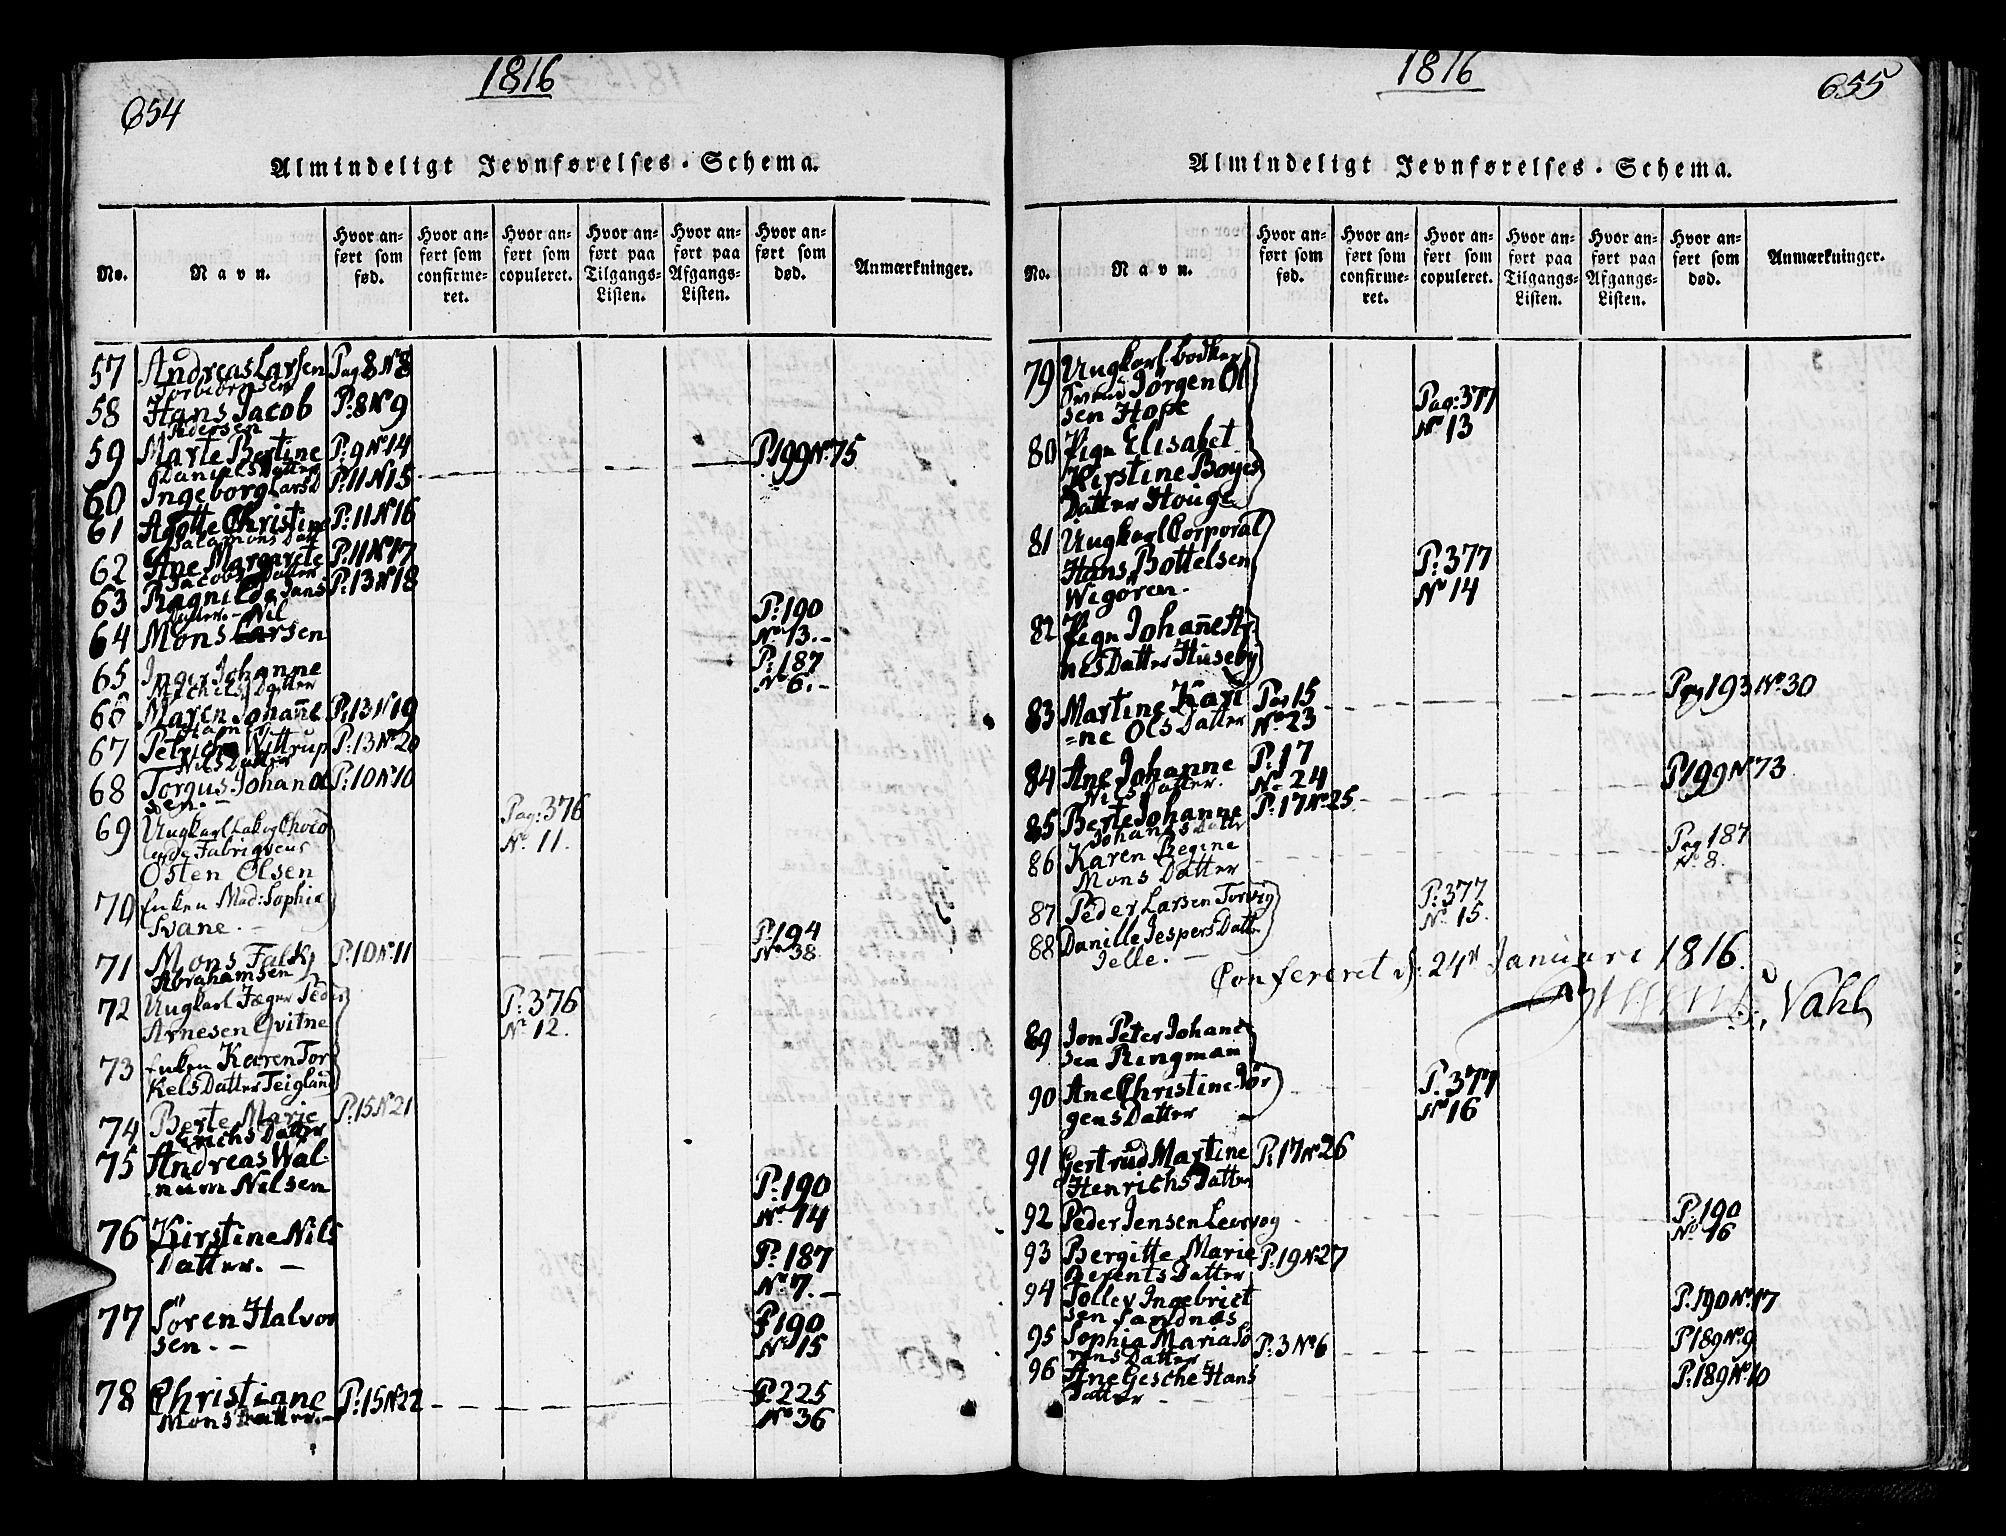 654
1816
Almindeligt Jevnførelses-Schema.
No.
Navn.
Hvor anført som fød.
Hvor anført som confirmeret.
Hvor anført som copuleret.
Hvor anført paa Tilgangs-Listen.
Hvor anført paa Afgangs-Listen.
Hvor anført som død.
Anmærkninger.
57 Andreas Larsen Pag 8 No 8
Torbiörnsen
58 Hans Jacob P: 8 No 9
Pedersen
59 Marte Bertine P: 9 No 14 P 199 No 75
Daniels Datter
60 Ingeborg Lars D P: 11 N 15
61 Agotte Christine P: 11 No 16
Salamons Datt
62 Ane Margarete P: 11 No 17
Jacobs Datter
63 Ragnilde Jans P: 13 No 18
Datter. Nil
64 Mons Larsen P: 190
No 13.-
65 Inger Johanne P: 187
Michels Datter No 6.-
66 Maren Johanne P: 13 N 19
67 Petriche Wittrup P: 13 No 20
Nils Datter
68 Torgus Johanne P: 10 No 10
sen.-
69 Ungkarl Lak og Choco Pag: 376
lade Fabriqveus No 11.
Osten Olsen
70 Enken Mad: Sophia
Svane. - P: 194
71 Mons Falk P: 10 No 11 No 38
Abrahamsen
72 Ungkarl Jæger Peder P: 376
Arnesen Qvitne No 12.
73 Enken Karen Tor
kels Datter Teigland
74 Berte Marie P: 15 N 21
Erichs Datter
75 Andreas Wal-
num Nilsen P: 190
No 14
76 Kirstine Nils
Datter. - P: 187
No 7.-
77 Sören Halvor P: 190
sen. - No 15
78 Christianne P: 15 N 22 P: 225
Mons Datter.- No 36
1816
655
Almindeligt Jevnførelses-Schema.
No.
Navn.
Hvor anført som fød.
Hvor anført som confirmeret.
Hvor anført som copuleret.
Hvor anført paa Tilgangs-Listen.
Hvor anført paa Afgangs-Listen.
Hvor anført som død.
Anmærkninger.
79 Ungkarl bødker
Svend Jörgen Ol Pag: 377
sen Hope No 13
80 Pign Elisabet
Kirstine Boyes
Datter Houge
81 Ungkarl Corporal
Hans Bottelsen P: 377
Wigören. No 14
82 Pign Johanne Ar
nes Datter Huseby
83 Martine Kari Pag 15 Pag 193 No 30
=ne Ols Datter No 23
84 Ane Johanne P: 17 P 199 No 73
Nils Datter. No 24
85 Berte Johanne P: 17 No 25
Johans Datter
86 Karen Regine Pag 187
Mons Datter No 8.
87 Peder Larsen Torvig P: 377
88 Danille Jespers Datter No 15.
Jelle. -
Confereret d: 24n Januari 1816.
Vahl
89 Jon Peter Johane
sen Ringman
90 Ane Christine Jör P: 377
gens Datter - No 16
91 Gertrud Martine P: 17 No 26
Henrichs Datter
92 Peder Jensen Leervog P: 190
No 16
93 Bergitte Marie P: 19 No 27
Berents Datter
94 Tollev Ingebrict P: 190 No 17
sen Sandnæs
95 Sophia Maria Sö P: 3 No 6 P 189 No 9
rens Datter
96 Ane Gesche Hans P: 189 No 10
Datter